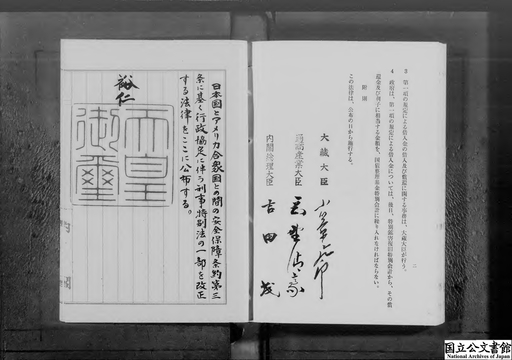 3 第一項の規定による借入金の借入及び償還に関する事務は、大蔵大臣が行う。
4 政府は、第一項の規定による借入金については、後日、特別鉱害復旧特別会計から、その償
還金及び利子に相当する金額を、国債整理基金特別会計に繰り入れなければならない。
附 則
この法律は、公布の日から施行する。
二
大蔵大臣
通商産業大臣
内閣総理大臣 吉田茂
日本国とアメリカ合衆国との間の安全保障条約第三
条に基く行政協定に伴う刑事特別法の一部を改正
する法律をここに公布する。
裕仁
天皇
御璽
国立公文書館
National Archives of Japan